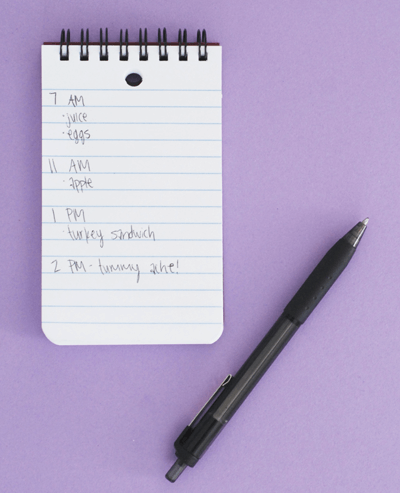 7 AM
·juice
·eggs
11 AM
·apple
1 PM
·turkey sandwich
2 PM - tummy ache!